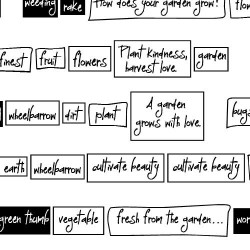 weeding rake How does your garden grow? flow
finest fruit flowers Plant kindness, harvest love. garden
wheelbarrow dirt plant A garden grows with love. bugs
earth wheelbarrow cultivate beauty cultivate beauty
green thumb vegetable fresh from the garden...